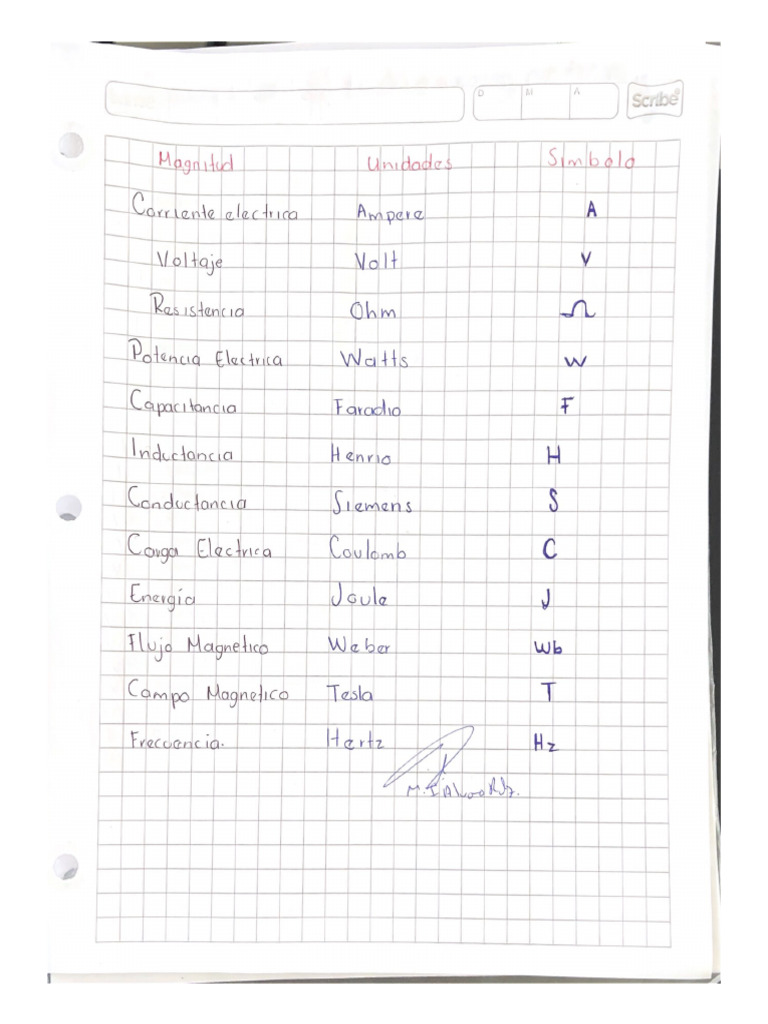 D M A Scribe
Magnitud Unidades Simbolo
Corriente electrica Ampere A
Voltaje Volt V
Resistencia Ohm Ω
Potencia Electrica Watts W
Capacitancia Faradio F
Inductancia Henrio H
Conductancia Siemens S
Carga Electrica Coulomb C
Energía Joule J
Flujo Magnetico Weber Wb
Campo Magnetico Tesla T
Frecuencia. Hertz Hz